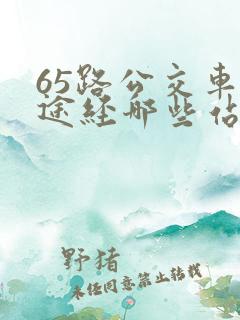 65路公交车
途经那些站
野猪
未经同意禁止转载